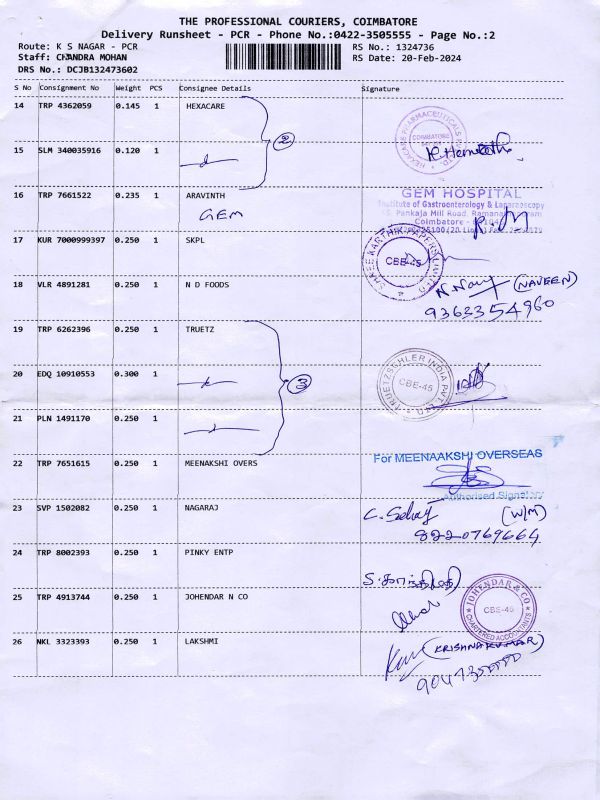 THE PROFESSIONAL COURIERS, COIMBATORE
Delivery Runsheet - PCR - Phone No.:0422-3505555 - Page No.:2
Route: K S NAGAR - PCR
RS No.: 1324736
Staff: CHANDRA MOHAN
RS Date: 20-Feb-2024
DRS No.: DCJB132473602
S No Consignment No Weight PCS Consignee Details Signature
14 TRP 4362059 0.145 1 HEXACARE
COIMBATORE
15 SLM 340035916 0.120 1
2
16 TRP 7661522 0.235 1 ARAVINTH
GEM
GEM HOSPITAL
Institute of Gastroenterology & Laparoscopy
Pankaja Mill Road,
17 KUR 7000999397 0.250 1 SKPL
SHREE KARTHIK PAPERS LIMITED
CBE-45
18 VLR 4891281 0.250 1 N D FOODS
(NAVEEN)
9363354960
19 TRP 6262396 0.250 1 TRUETZ
20 EDQ 10910553 0.300 1
3
TRUETZSCHLER INDIA PVT. LTD
CBE-45
21 PLN 1491170 0.250 1
22 TRP 7651615 0.250 1 MEENAKSHI OVERS
For MEENAAKSHI OVERSEAS
Authorised Signatory
23 SVP 1502082 0.250 1 NAGARAJ
(W/M)
8220769664
24 TRP 8002393 0.250 1 PINKY ENTP
25 TRP 4913744 0.250 1 JOHENDAR N CO
JOHENDAR & CO
CHARTERED ACCOUNTANTS
CBE-45
26 NKL 3323393 0.250 1 LAKSHMI
(KRISHNAKUMAR)